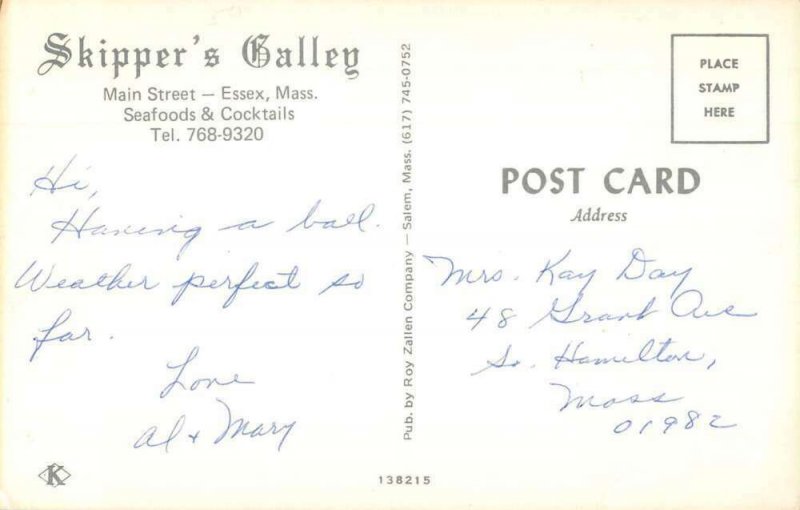 Skipper's Galley
Main Street — Essex, Mass.
Seafoods & Cocktails
Tel. 768-9320
Hi,
Having a ball.
Weather perfect so
far.
Love
Al & Mary
K
Pub. by Roy Zallen Company — Salem, Mass. (617) 745-0752
138215
PLACE
STAMP
HERE
POST CARD
Address
Mrs. Kay Day
48 Grant Ave
So. Hamilton,
Mass
01982